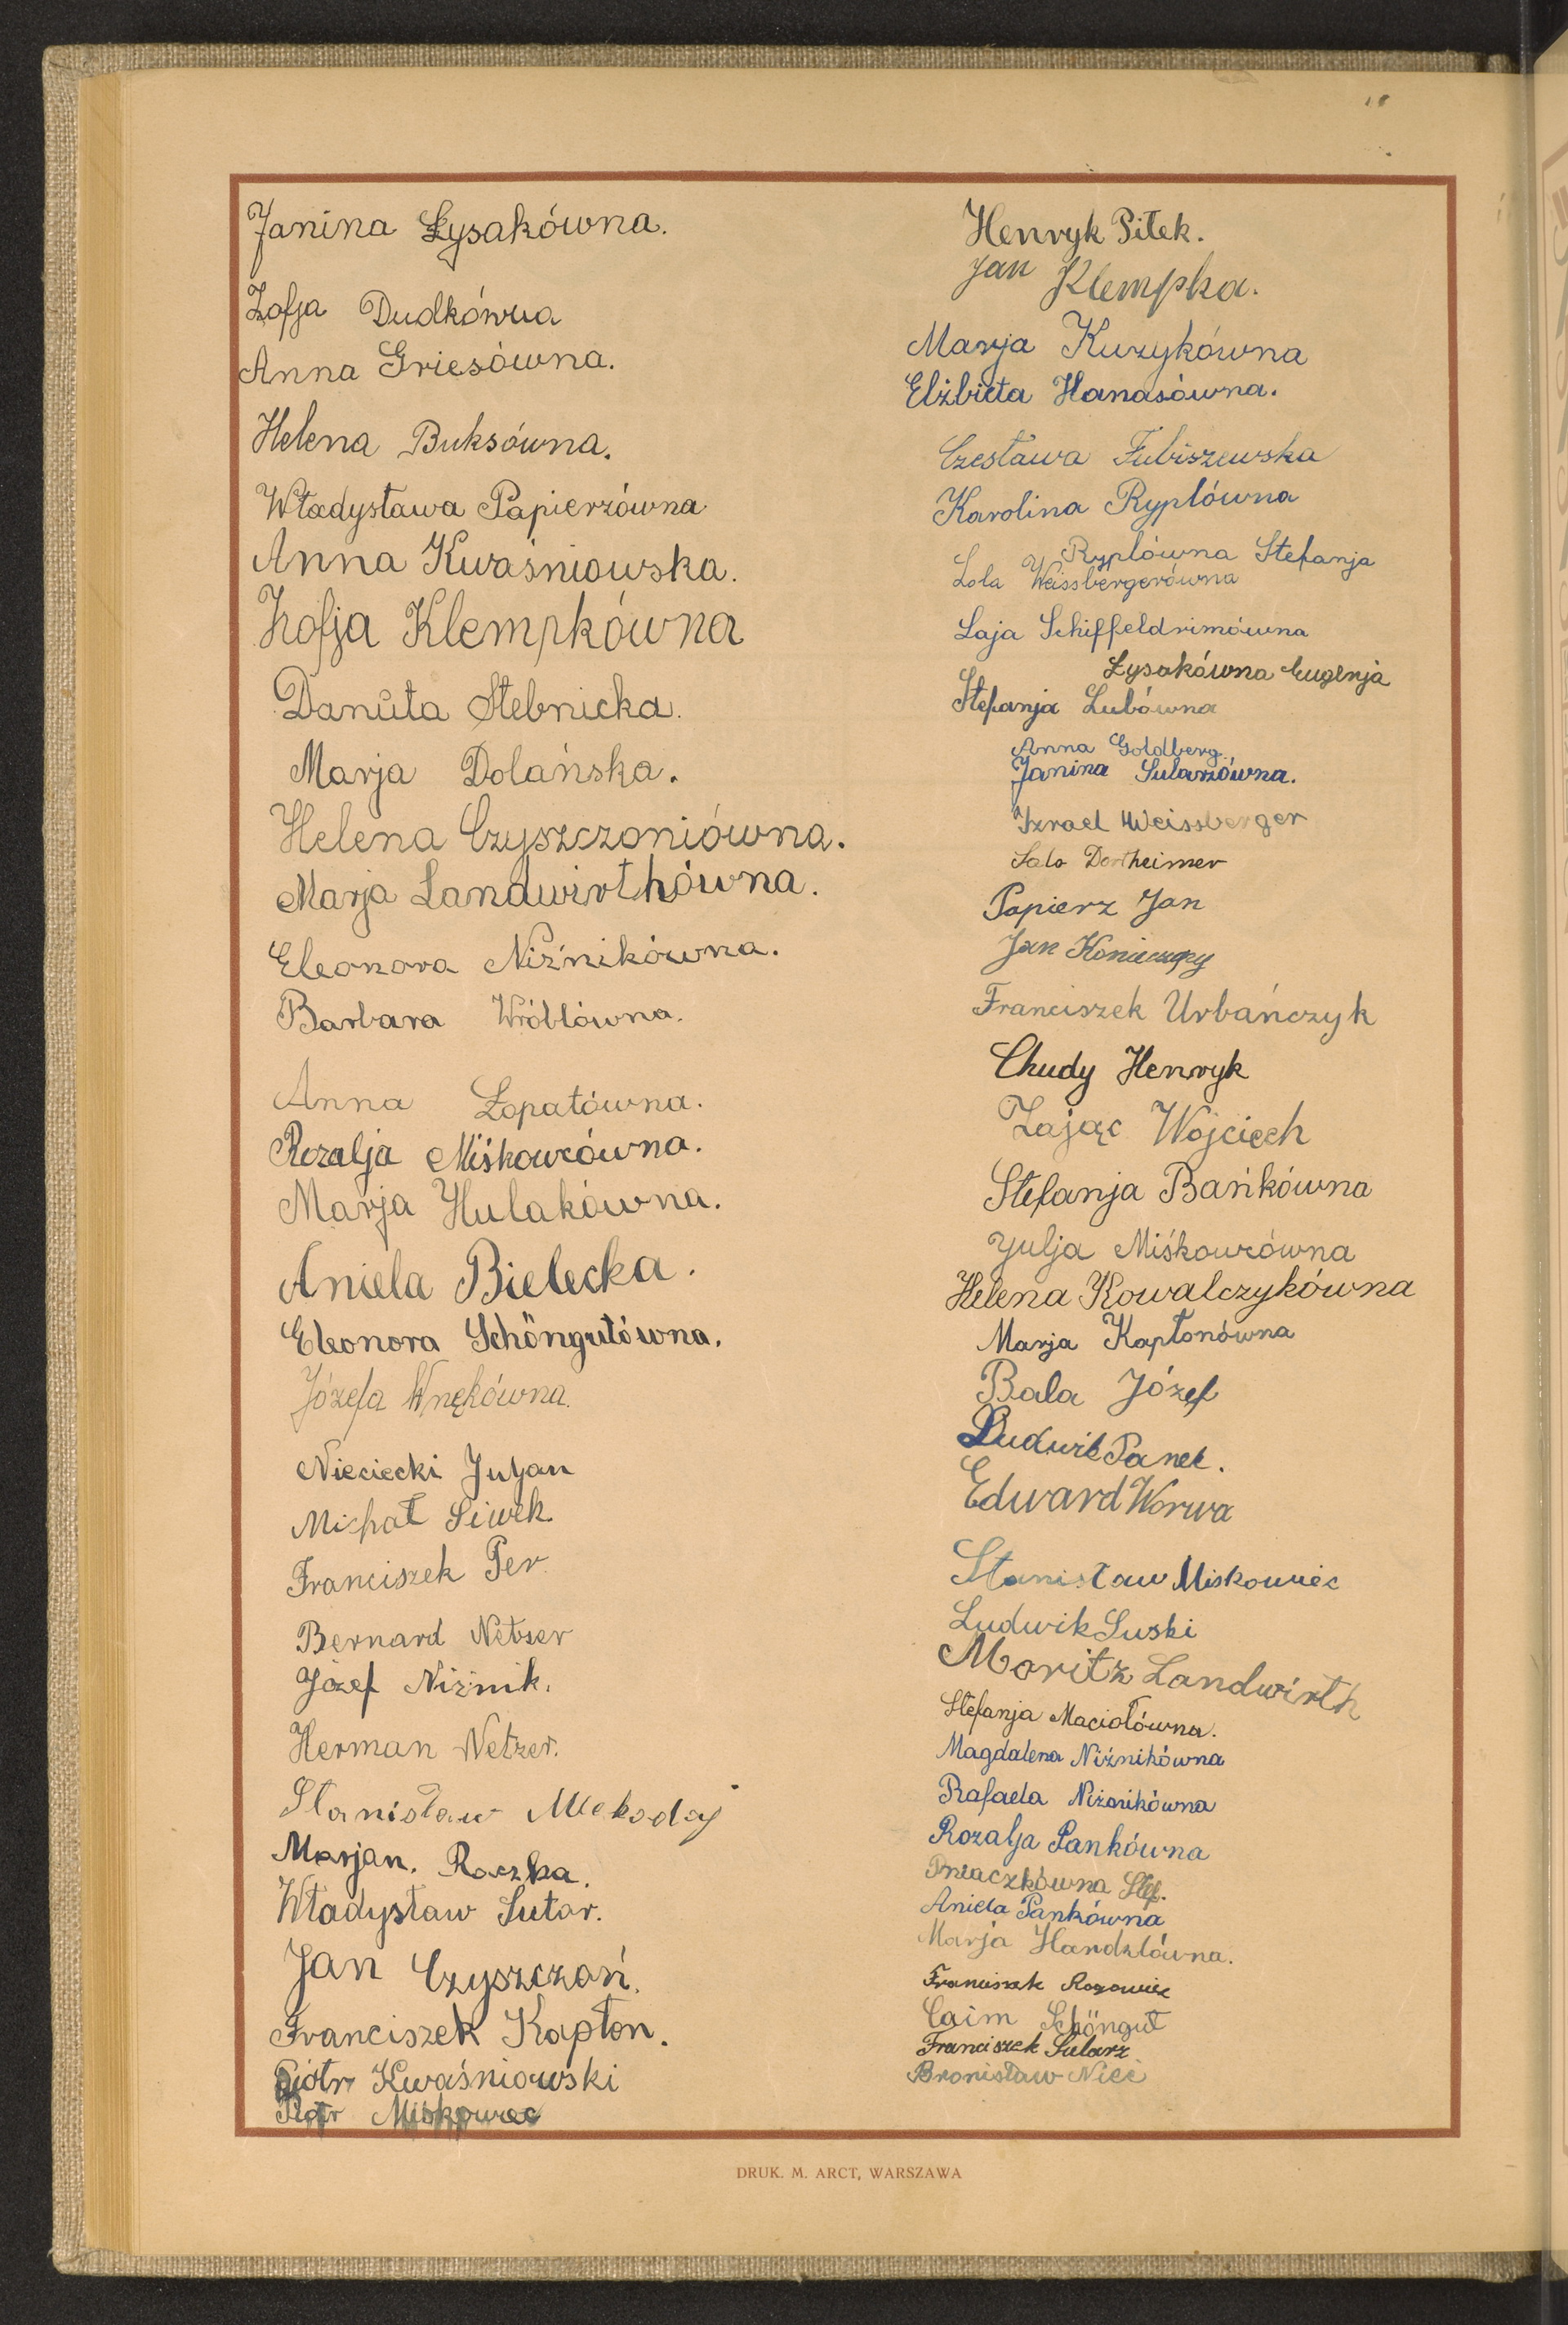 Janina Łysakówna.
Zofja Dudkówna
Anna Griesówna.
Helena Buksówna.
Władysława Papierzówna
Anna Kwaśniowska.
Zofja Klempkówna
Danuta Stebnicka.
Marja Dolańska.
Helena Czyszczoniówna.
Marja Landwirthówna.
Eleonora Niźnikówna.
Barbara Wróblówna.
Anna Łopatówna.
Rozalja Miśkowcówna.
Marja Hulakówna.
Aniela Bielecka.
Eleonora Schöngutówna.
Józefa Wnękówna.
Nieciecki Juljan
Michał Siwek.
Franciszek Per
Bernard Netzer
Józef Niźnik.
Herman Netzer.
Stanisław
Marjan. Raczka.
Władysław Sutor.
Jan Czyszczoń.
Franciszek Kapłon.
Piotr Kwaśniowski
Piotr Miśkowiec
Henryk Piłek.
Jan Klempka.
Marja Kuzykówna
Elżbieta Hanasówna.
Czesława Fubiszewska
Karolina Ryplówna
Ryplówna Stefanja
Lola Weissbergerówna
Laja Schiffeldrimówna
Łysakówna Eugenja
Stefanja Lubówna
Anna Goldberg
Janina Sularzówna.
Izrael Weissberger
Salo Dortheimer
Papierz Jan
Jan Konieczny
Franciszek Urbańczyk
Chudy Henryk
Zając Wojciech
Stefanja Bańkówna
Julja Miśkowcówna
Helena Kowalczykówna
Marja Kapłonówna
Bala Józef
Ludwik Panek.
Edward Worwa
Stanisław Miskowiec
Ludwik Suski
Moritz Landwirth
Stefanja Maciołówna.
Magdalena Niźnikówna
Rafaela Niźnikówna
Rozalja Pankówna
Pniaczkówna Stef.
Aniela Pankówna
Marja Handzlówna.
Franciszek Rogowiec
Caim Schöngut
Franciszek Sularz
Bronisław Nieć
DRUK. M. ARCT, WARSZAWA